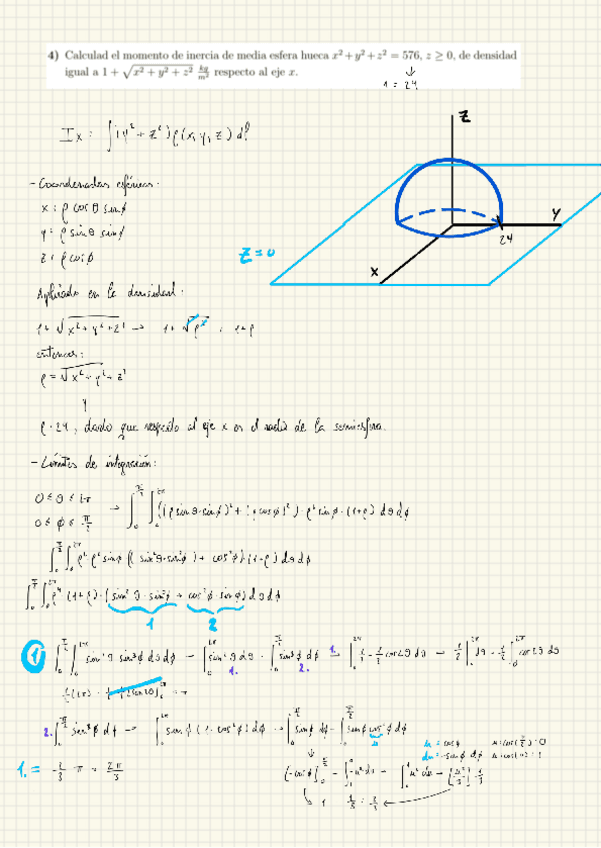 4) Calculad el momento de inercia de media esfera hueca x² + y² + z² = 576, z ≥ 0, de densidad
igual a 1 + √(x² + y² + z²) kg/m² respecto al eje x.
r = 24
Ix = ∫(y² + z²) ρ(x, y, z) dρ
z
y
x
24
z=0
- Coordenadas esféricas:
x = ρ cos θ sin ϕ
y = ρ sin θ sin ϕ
z = ρ cos ϕ
Aplicado en la densidad:
1+ √(x² + y² + z²) → 1+ √ρ² = 1+ρ
entonces:
ρ = √(x² + y² + z²)
y
ρ = 24, dado que respecto al eje x es el radio de la semiesfera.
- Límites de integración:
0 ≤ θ ≤ 2π
0 ≤ ϕ ≤ π/2
→ ∫₀^(π/2) ∫₀^(2π) ((ρ sin θ · sin ϕ)² + (ρ cos ϕ)²) · ρ² sin ϕ · (1+ρ) dθ dϕ
∫₀^(π/2) ∫₀^(2π) ρ² · ρ² sin ϕ ((sin² θ · sin² ϕ) + cos² ϕ) (1+ρ) dθ dϕ
∫₀^(π/2) ∫₀^(2π) ρ⁴ (1+ρ) · (sin² θ · sin³ ϕ + cos² ϕ · sin ϕ) dθ dϕ
1 2
① ∫₀^(π/2) ∫₀^(2π) sin² θ sin³ ϕ dθ dϕ → ∫₀^(2π) sin² θ dθ · ∫₀^(π/2) sin³ ϕ dϕ → ∫₀^(2π) 1/2 - 1/2 cos 2θ dθ → 1/2 ∫₀^(2π) dθ - 1/2 ∫₀^(2π) cos 2θ dθ
1. 2. 1.
2. ∫₀^(π/2) sin³ ϕ dϕ → ∫ sin ϕ (1 - cos² ϕ) dϕ → ∫ sin ϕ dϕ - ∫ sin ϕ cos² ϕ dϕ
u = cos ϕ u = cos(π/2) = 0
du = -sin ϕ dϕ u = cos(0) = 1
1. = 2/3 π = 2π/3